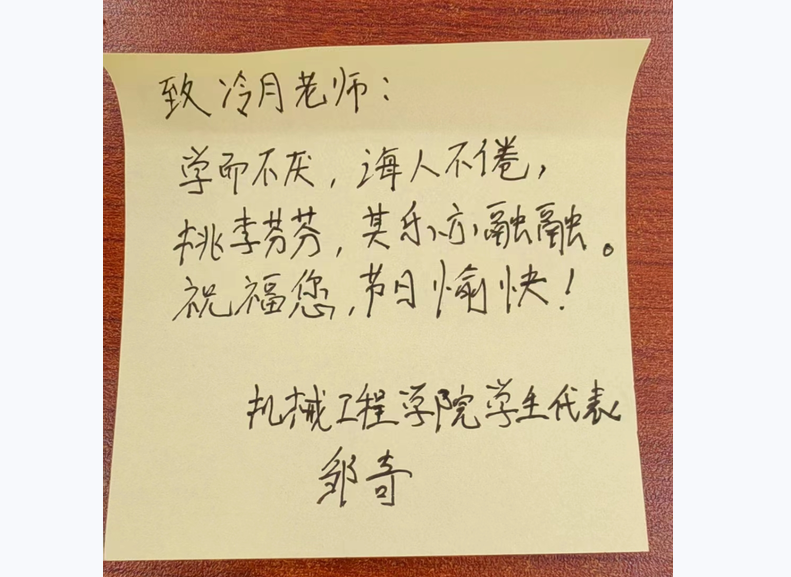 致冷月老师：
学而不厌，诲人不倦，
桃李芬芬，其乐亦融融。
祝福您，节日愉快！
机械工程学院学生代表
邹奇